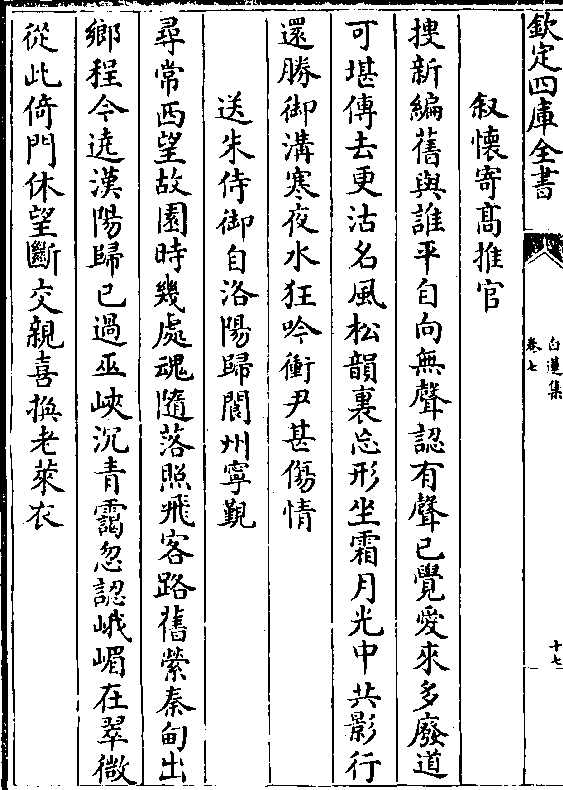 欽定四庫全書
白蓮集
卷七
十七
叙懷寄髙推官
搜新編舊與誰平自向無聲認有聲已覺愛來多廢道
可堪傳去更沽名風松韻裏忘形坐霜月光中共影行
還勝御溝寒夜水狂吟衝尹甚傷情
送朱侍御自洛陽歸閬州寧覲
尋常西望故園時幾處魂隨落照飛客路舊縈秦甸出
鄉程今遶漢陽歸已過巫峽沉青靄忽認峨嵋在翠微
從此倚門休望斷交親喜換老萊衣